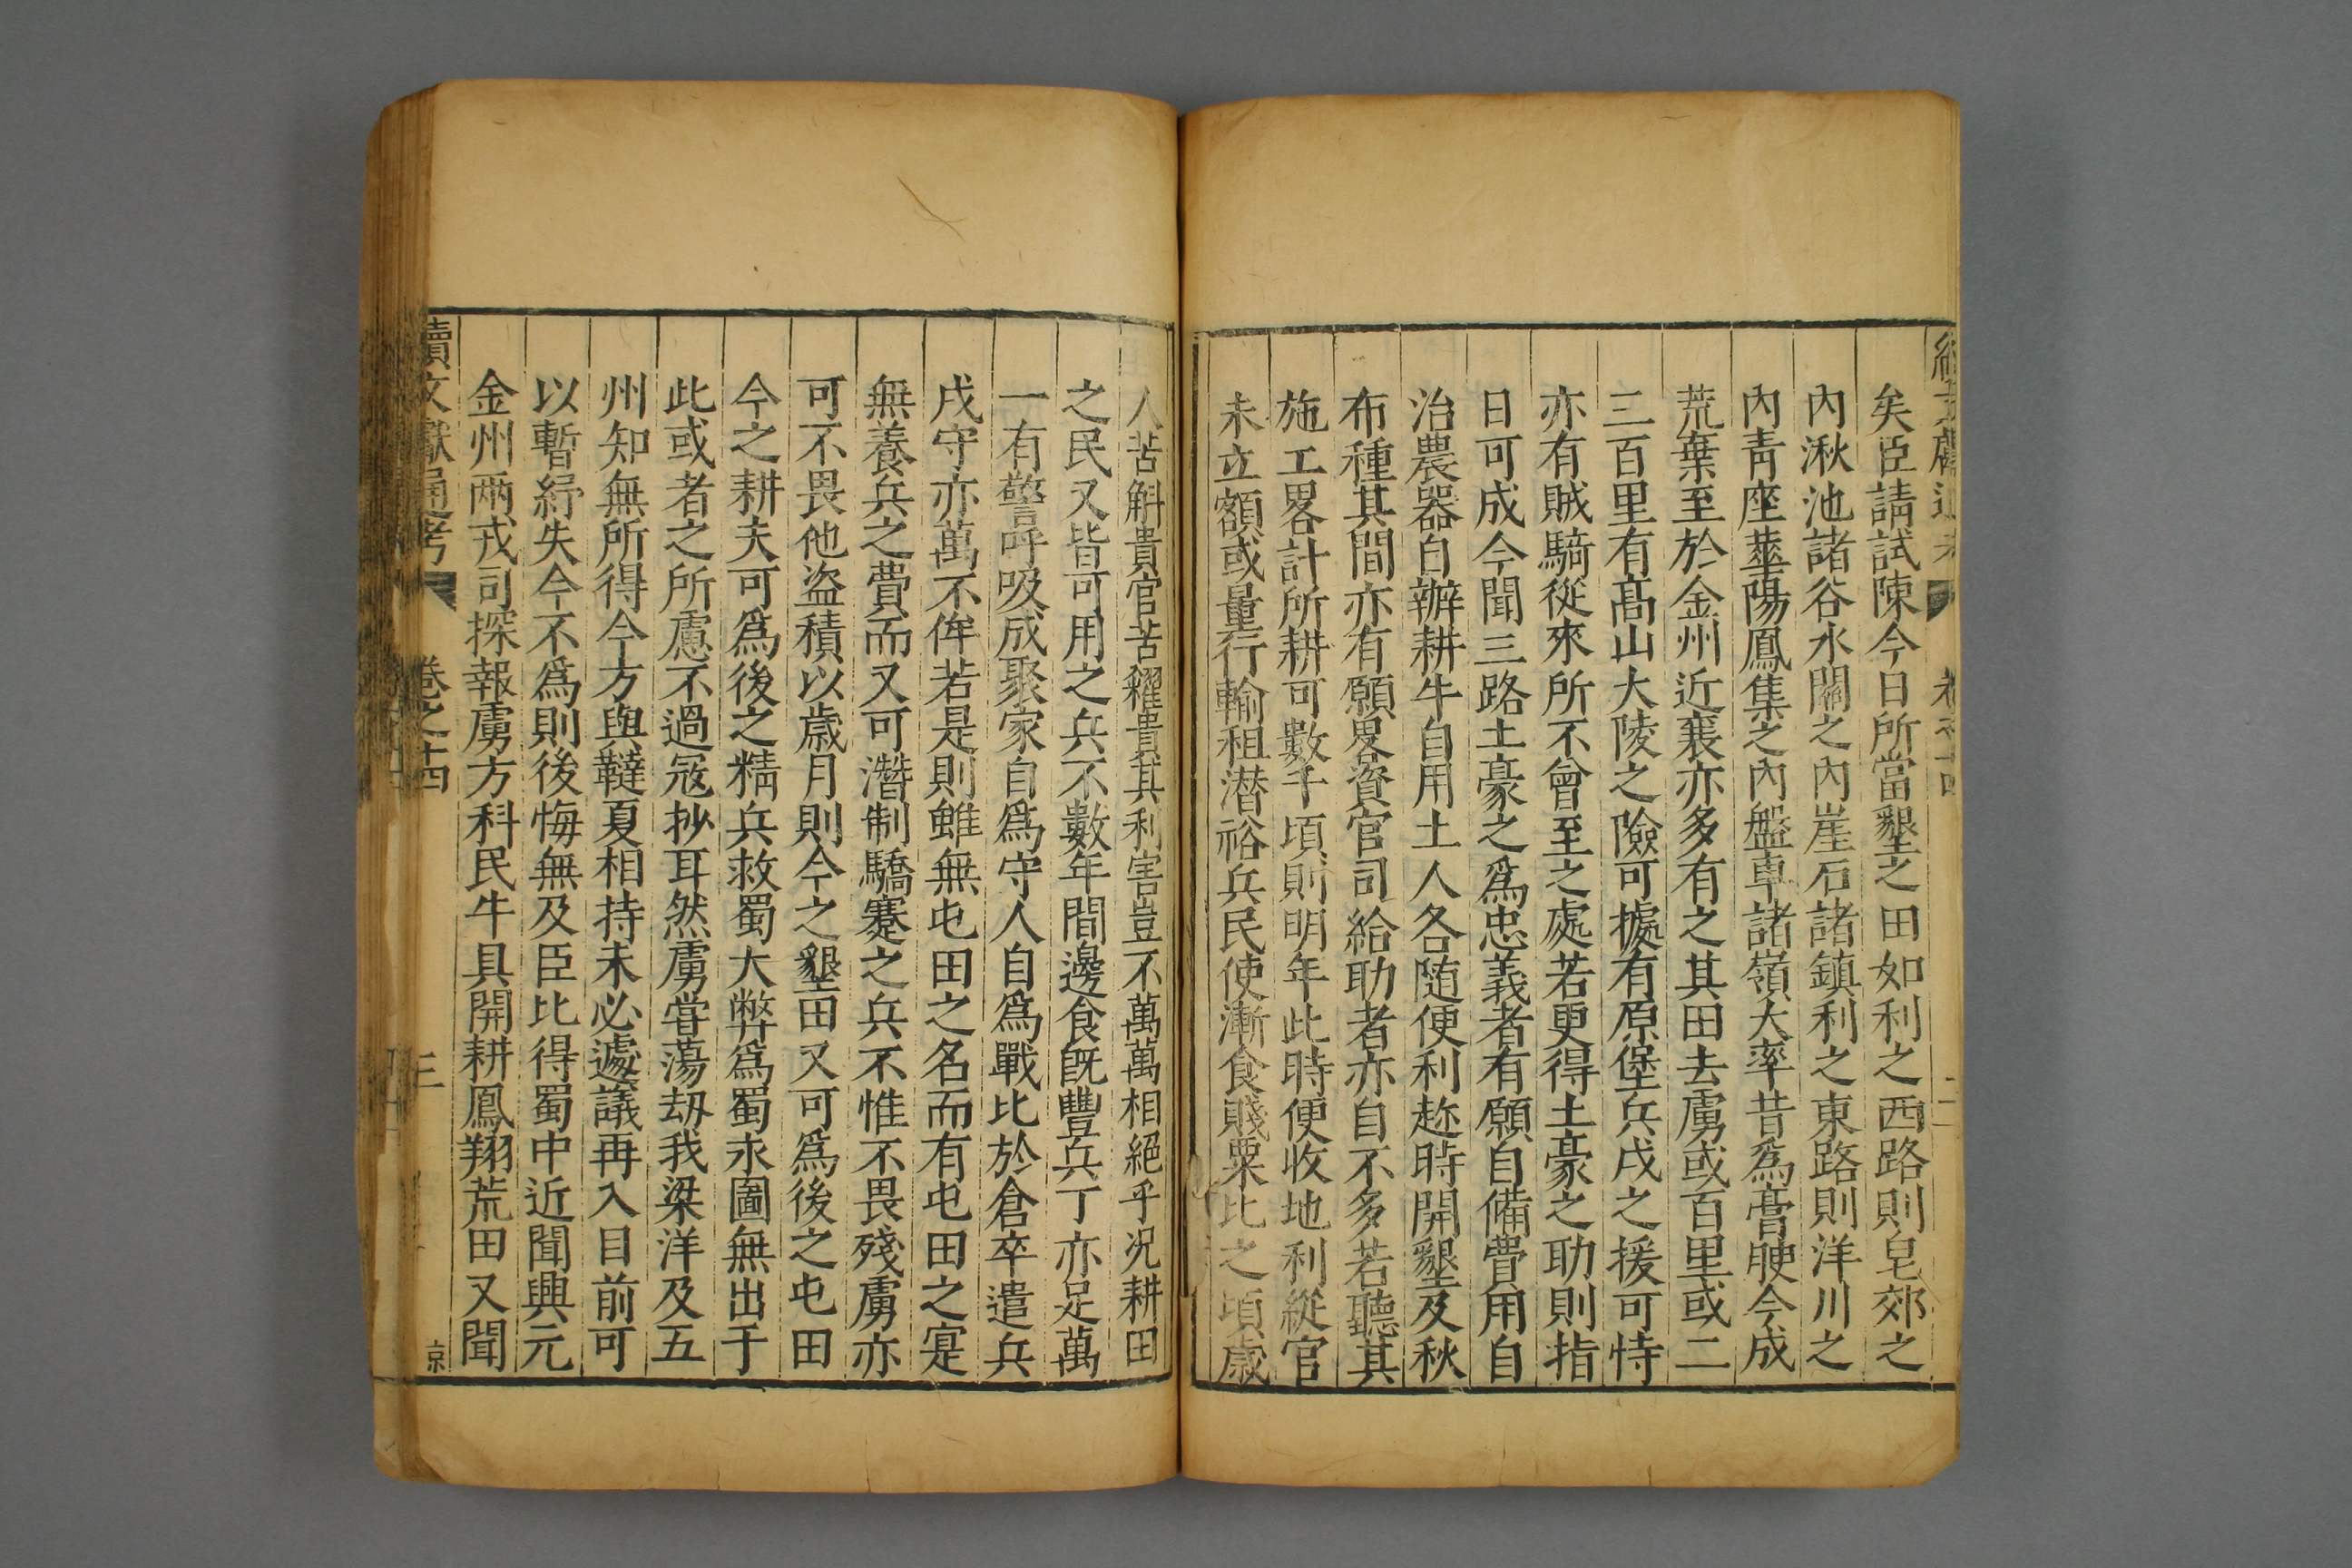 矣臣請試陳今日所當墾之田如利之西路則皂郊之
內湫池諸谷水關之內崖石諸鎮利之東路則洋川之
內青座華陽鳳集之內盤車諸嶺大率昔爲膏腴今成
荒棄至於金州近襄亦多有之其田去虜或百里或二
三百里有高山大陵之險可據有原堡兵戍之援可恃
亦有賊騎從來所不曾至之處若更得土豪之助則指
日可成今聞三路土豪之爲忠義者有願自備費用自
治農器自辦耕牛自用土人各隨便利趂時開墾及秋
布種其間亦有願畧資官司給助者亦自不多若聽其
施工畧計所耕可數千頃則明年此時便收地利縱官
未立額或量行輸租潜裕兵民使漸食賤粟比之頃歲
人苦斛貴官苦糴貴其利害豈不萬萬相絕乎况耕田
之民又皆可用之兵不數年間邊食旣豐兵丁亦足萬
一有警呼吸成聚家自爲守人自爲戰比於倉卒遣兵
戍守亦萬不侔若是則雖無屯田之名而有屯田之寔
無養兵之費而又可潛制驕蹇之兵不惟不畏殘虜亦
可不畏他盗積以歲月則今之墾田又可爲後之屯田
今之耕夫可爲後之精兵救蜀大弊爲蜀永圖無出于
此或者之所慮不過冦抄耳然虜嘗蕩劫我梁洋及五
州知無所得今方與韃夏相持未必遽議再入目前可
以暫紓失今不爲則後悔無及臣比得蜀中近聞興元
金州兩戎司探報虜方科民牛具開耕鳳翔荒田又聞
續文獻通考 卷之十四 三 京